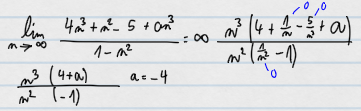 lim n→∞ (4n³ + n² - 5 + an³) / (1 - n²) = ∞   n³ (4 + 1/n - 5/n³ + a) / n² (1/n² - 1)   0 0 0
n³ (4+a) / n² (-1)   a = -4